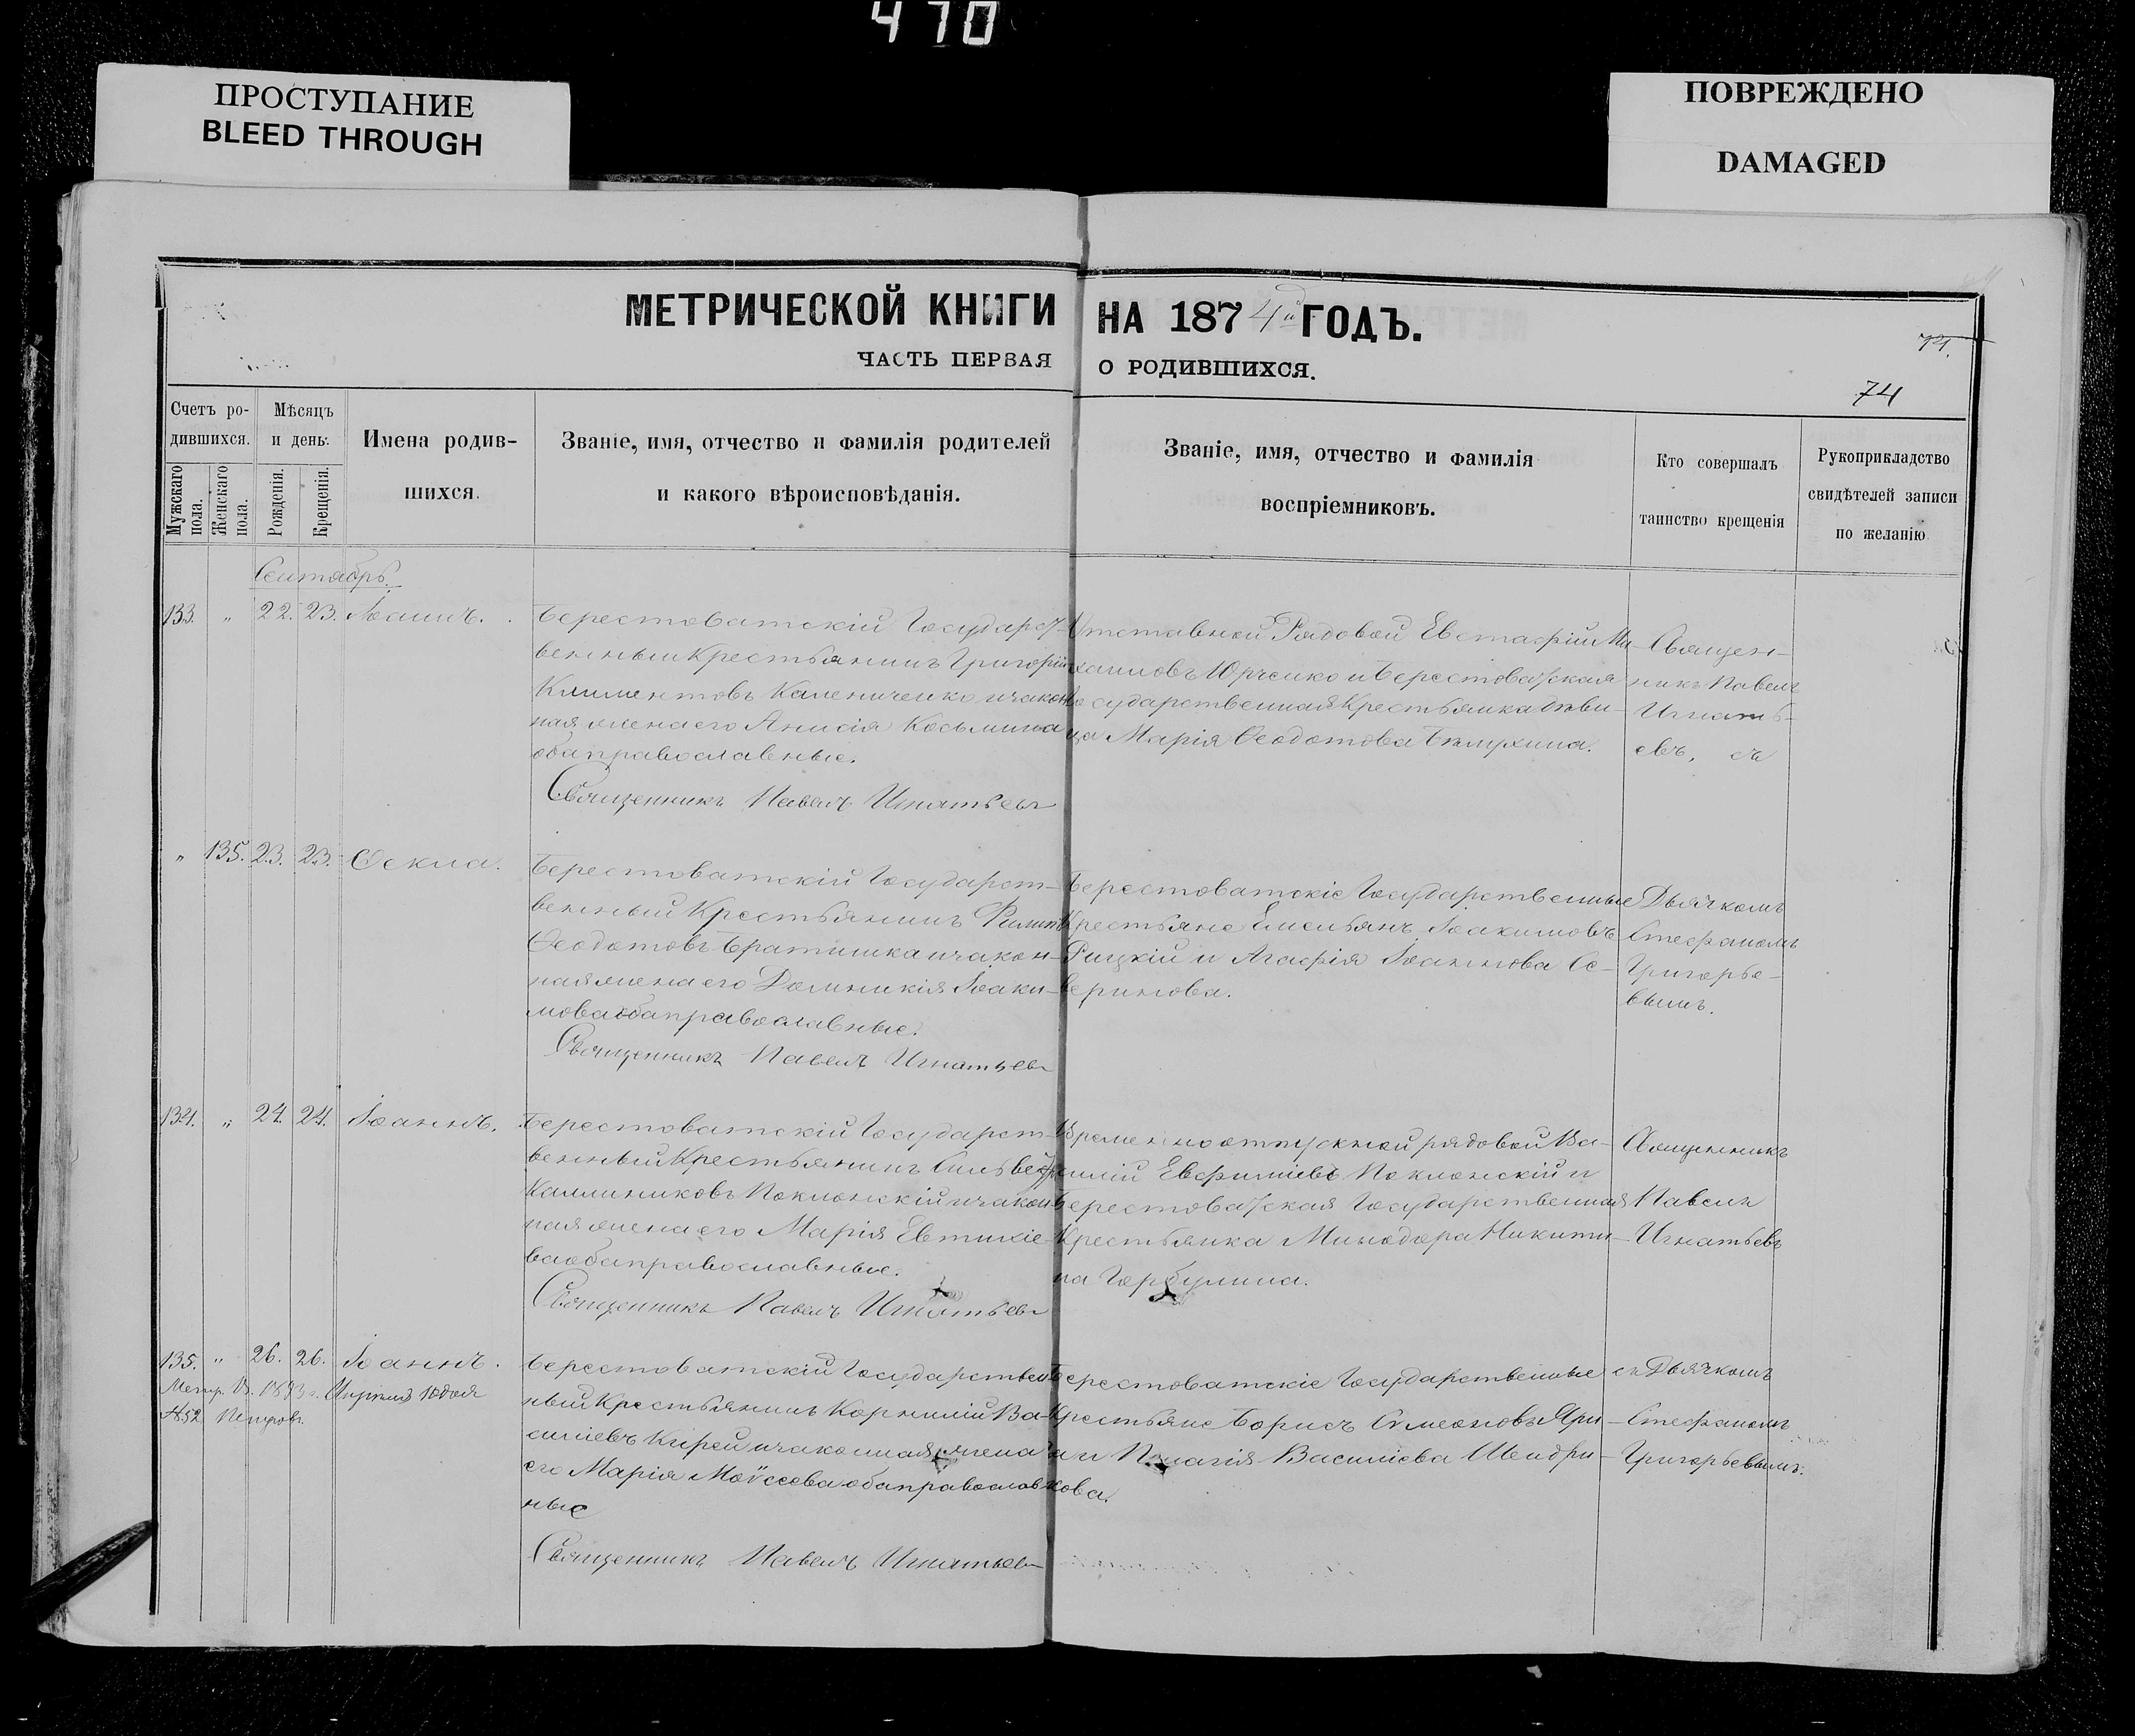 470
ПРОСТУПАНИЕ
BLEED THROUGH
ПОВРЕЖДЕНО
DAMAGED
МЕТРИЧЕСКОЙ КНИГИ НА 1874й ГОДЪ.
ЧАСТЬ ПЕРВАЯ О РОДИВШИХСЯ.
74
Счетъ ро-
дившихся.
Мужскаго пола.
Женскаго пола.
Мѣсяцъ
и день.
Рожденія.
Крещенія.
Имена родив-
шихся.
Званіе, имя, отчество и фамилія родителей
и какого вѣроисповѣданія.
Званіе, имя, отчество и фамилія
воспріемниковъ.
Кто совершалъ
таинство крещенія
Рукоприкладство
свидѣтелей записи
по желанію
Сентябрь.
133. " 22. 23. Іоаннъ.
Берестоватскій Государст-
венный Крестьянинъ Григорій
Климентовъ Калениченко и закон-
ная жена его Анисія Косьмина
оба православные.
Священникъ Павелъ Игнатьевъ
Отставной Рядовой Евстафій Ми-
хаиловъ Юрченко и Берестоватская
Государственная Крестьянка дѣви-
ца Марія Ѳеодотова
Священ-
никъ Павелъ
Игнать-
евъ, съ
" 135. 23. 23. Ѳекла.
Берестоватскій Государст-
венный Крестьянинъ Филиппъ
Ѳеодотовъ Братишка и закон-
ная жена его Домникія Іоаки-
мова оба православные.
Священникъ Павелъ Игнатьевъ
Берестоватскіе Государственные
Крестьяне Емельянъ Іоакимовъ
Рицкій и Агафія Іоаннова Се-
веринова.
Дьячкомъ
Стефаномъ
Григорье-
вымъ.
134. " 24. 24. Іоаннъ.
Берестоватскій Государст-
венный Крестьянинъ Сильвестръ
Каллиниковъ Поклонскій и закон-
ная жена его Марія Евтихіе-
ва оба православные.
Священникъ Павелъ Игнатьевъ
Временно отпускной рядовой Ва-
силій Евфиміевъ Поклонскій и
Берестоватская Государственная
Крестьянка Минодора Никити-
на Горбулина.
Священникъ
Павелъ
Игнатьевъ
135. " 26. 26. Іоаннъ.
Метр. В. 1893 г.
№ 52 Петровъ
Берестоватскій Государствен-
ный Крестьянинъ Корнилій Ва-
силіевъ Кирей и законная жена
его Марія Моѵсеева оба православ-
ные
Священникъ Павелъ Игнатьевъ
Берестоватскіе Государственные
Крестьяне Борисъ Симеоновъ
и Пелагія Василіева Шендри-
кова.
съ Дьячкомъ
Стефаномъ
Григорьевымъ.